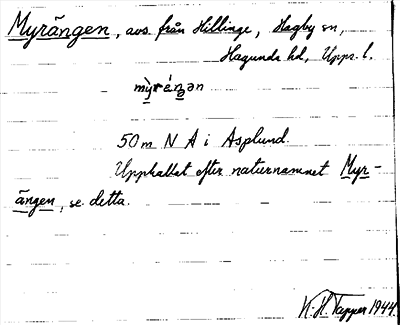 Myrängen, avs. från Hillinge, Hagby sn,
Hagunda hd, Upps. l.
50 m N A i Asplund.
Uppkallat efter naturnamnet Myr-
ängen, se detta.
K. H. Tapper 1944.